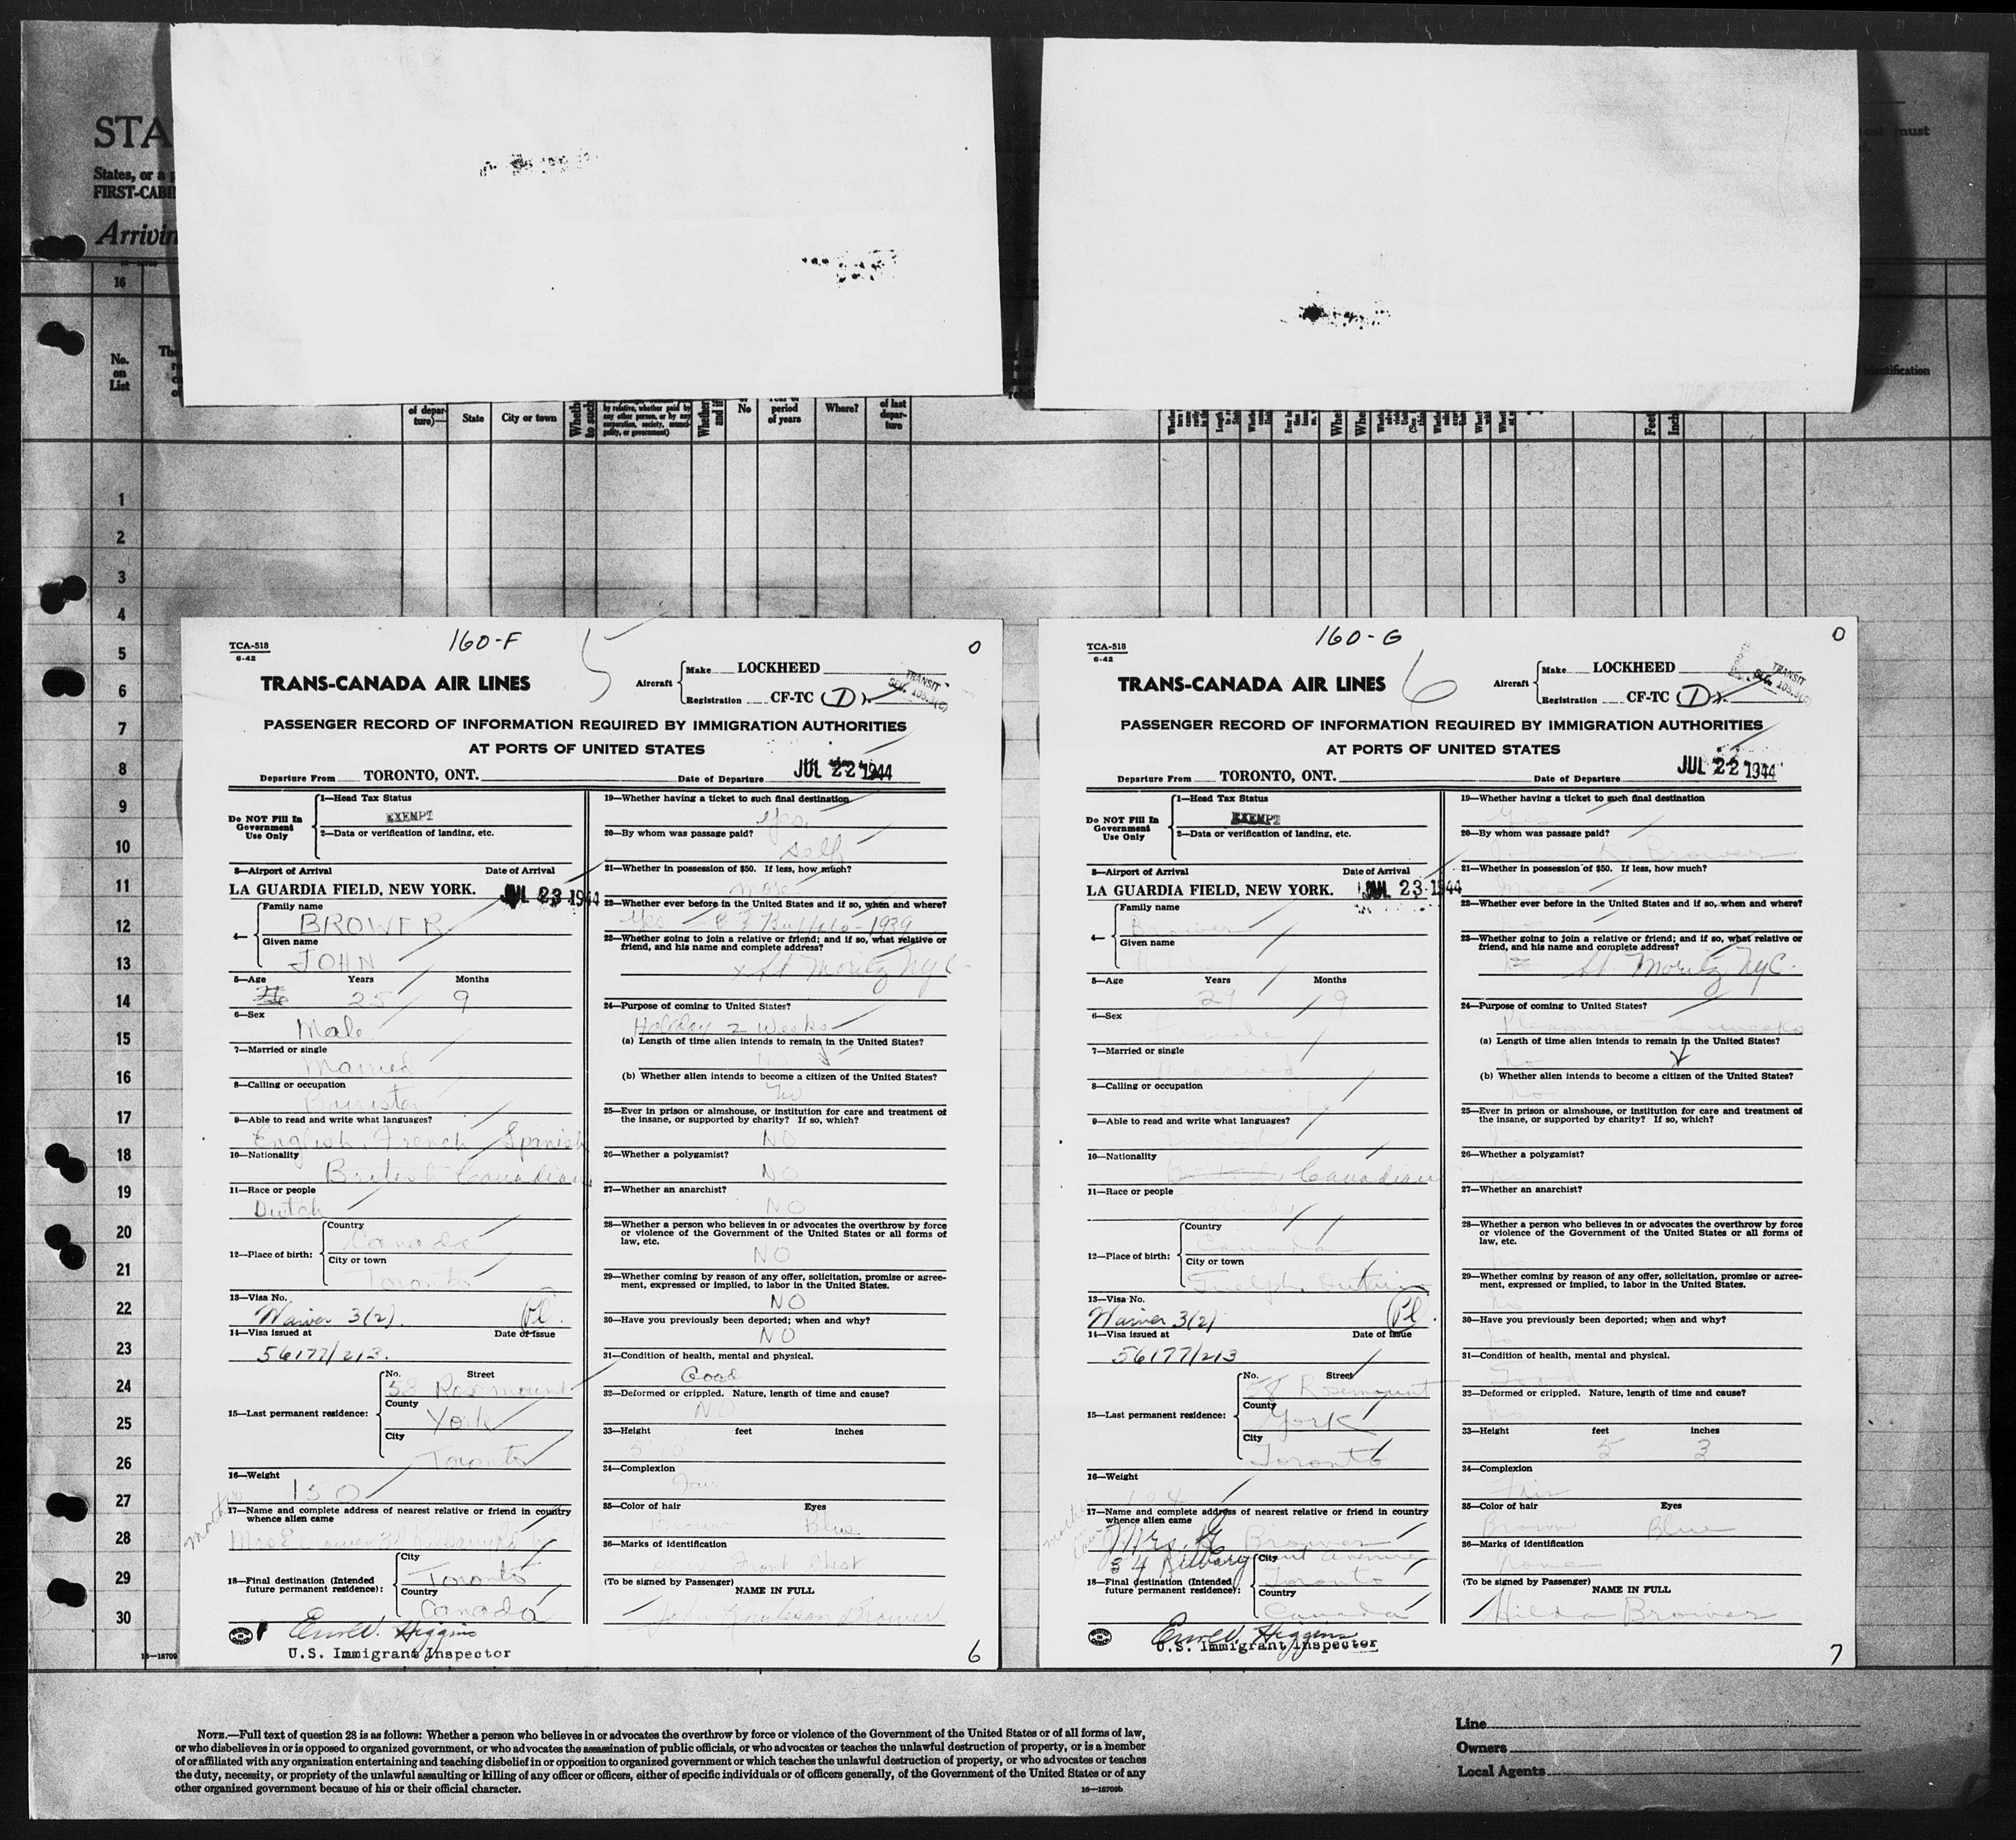 STA
States, or a p
FIRST-CABI
Arrivin
16
No.
on
List
of depar-
ture)—
State
City or town
Wheth
to such
by relative, whether paid by
any other person, or by any
corporation, society, munici-
pality, or government)
Whether
and if
No
period
of years
Where?
of last
depar-
ture
must
identification
Feet
Inch
1
2
3
4
5
6
7
8
9
10
11
12
13
14
15
16
17
18
19
20
21
22
23
24
25
26
27
28
29
30
16—18709
TCA-518
6-42
160-F
5
0
TRANS-CANADA AIR LINES
Aircraft
Make LOCKHEED
Registration CF-TC (D)
TRANSIT
SEC. 103.3(c)
PASSENGER RECORD OF INFORMATION REQUIRED BY IMMIGRATION AUTHORITIES
AT PORTS OF UNITED STATES
Departure From TORONTO, ONT. Date of Departure JUL 22 1944
Do NOT Fill In
Government
Use Only
1—Head Tax Status
EXEMPT
2—Data or verification of landing, etc.
3—Airport of Arrival Date of Arrival
LA GUARDIA FIELD, NEW YORK. JUL 23 1944
4—
Family name
BROWER
Given name
JOHN
5—Age Years Months
25 9
6—Sex
Male
7—Married or single
Married
8—Calling or occupation
Barrister
9—Able to read and write what languages?
English French Spanish
10—Nationality
British Canadian
11—Race or people
Dutch
12—Place of birth:
Country
Canada
City or town
Toronto
13—Visa No.
Waiver 3(2). Pl.
14—Visa issued at Date of Issue
56177/213.
15—Last permanent residence:
No. Street
58 Rosemount
County
York
City
Toronto
16—Weight
150
17—Name and complete address of nearest relative or friend in country
whence alien came
mother
Mrs E
18—Final destination (Intended
future permanent residence):
City
Toronto
Country
Canada
Higgins
U.S. Immigrant Inspector
19—Whether having a ticket to such final destination
Yes
20—By whom was passage paid?
self
21—Whether in possession of $50. If less, how much?
more
22—Whether ever before in the United States and if so, when and where?
Yes Buffalo - 1939
23—Whether going to join a relative or friend; and if so, what relative or
friend, and his name and complete address?
x St Moritz NYC.
24—Purpose of coming to United States?
Holiday 2 weeks
(a) Length of time alien intends to remain in the United States?
NO
(b) Whether alien intends to become a citizen of the United States?
No
25—Ever in prison or almshouse, or institution for care and treatment of
the insane, or supported by charity? If so, which?
NO
26—Whether a polygamist?
NO
27—Whether an anarchist?
NO
28—Whether a person who believes in or advocates the overthrow by force
or violence of the Government of the United States or all forms of
law, etc.
NO
29—Whether coming by reason of any offer, solicitation, promise or agree-
ment, expressed or implied, to labor in the United States.
NO
30—Have you previously been deported; when and why?
NO
31—Condition of health, mental and physical.
Good
32—Deformed or crippled. Nature, length of time and cause?
NO
33—Height feet inches
5'10"
34—Complexion
Fair
35—Color of hair Eyes
Brown Blue
36—Marks of identification
Front Chest
(To be signed by Passenger) NAME IN FULL
John Brower
6
TCA-518
6-42
160-G
6
0
TRANS-CANADA AIR LINES
Aircraft
Make LOCKHEED
Registration CF-TC (D)
TRANSIT
SEC. 103.3(c)
PASSENGER RECORD OF INFORMATION REQUIRED BY IMMIGRATION AUTHORITIES
AT PORTS OF UNITED STATES
Departure From TORONTO, ONT. Date of Departure JUL 22 1944
Do NOT Fill In
Government
Use Only
1—Head Tax Status
EXEMPT
2—Data or verification of landing, etc.
3—Airport of Arrival Date of Arrival
LA GUARDIA FIELD, NEW YORK. JUL 23 1944
4—
Family name
Brower
Given name
5—Age Years Months
9
6—Sex
7—Married or single
Married
8—Calling or occupation
9—Able to read and write what languages?
10—Nationality
Canadian
11—Race or people
12—Place of birth:
Country
Canada
City or town
Guelph, Ontario
13—Visa No.
Waiver 3(2) Pl.
14—Visa issued at Date of Issue
56177/213
15—Last permanent residence:
No. Street
58 Rosemount
County
York
City
Toronto
16—Weight
104
17—Name and complete address of nearest relative or friend in country
whence alien came
Mrs. Brower
34
18—Final destination (Intended
future permanent residence):
City
Toronto
Country
Canada
Higgins
U.S. Immigrant Inspector
19—Whether having a ticket to such final destination
Yes
20—By whom was passage paid?
Brower
21—Whether in possession of $50. If less, how much?
More
22—Whether ever before in the United States and if so, when and where?
23—Whether going to join a relative or friend; and if so, what relative or
friend, and his name and complete address?
St Moritz NYC.
24—Purpose of coming to United States?
Pleasure weeks
(a) Length of time alien intends to remain in the United States?
No
(b) Whether alien intends to become a citizen of the United States?
No
25—Ever in prison or almshouse, or institution for care and treatment of
the insane, or supported by charity? If so, which?
26—Whether a polygamist?
27—Whether an anarchist?
28—Whether a person who believes in or advocates the overthrow by force
or violence of the Government of the United States or all forms of
law, etc.
29—Whether coming by reason of any offer, solicitation, promise or agree-
ment, expressed or implied, to labor in the United States.
No
30—Have you previously been deported; when and why?
No
31—Condition of health, mental and physical.
Good
32—Deformed or crippled. Nature, length of time and cause?
No
33—Height feet inches
5 3
34—Complexion
Fair
35—Color of hair Eyes
Brown Blue
36—Marks of identification
None
(To be signed by Passenger) NAME IN FULL
Hilda Brower
7
NOTE.—Full text of question 28 is as follows: Whether a person who believes in or advocates the overthrow by force or violence of the Government of the United States or of all forms of law,
or who disbelieves in or is opposed to organized government, or who advocates the assassination of public officials, or who advocates or teaches the unlawful destruction of property, or is a member
of or affiliated with any organization entertaining and teaching disbelief in or opposition to organized government or which teaches the unlawful destruction of property, or who advocates or teaches
the duty, necessity, or propriety of the unlawful assaulting or killing of any officer or officers, either of specific individuals or of officers generally, of the Government of the United States or of any
other organized government because of his or their official character.
16—18709b
Line
Owners
Local Agents